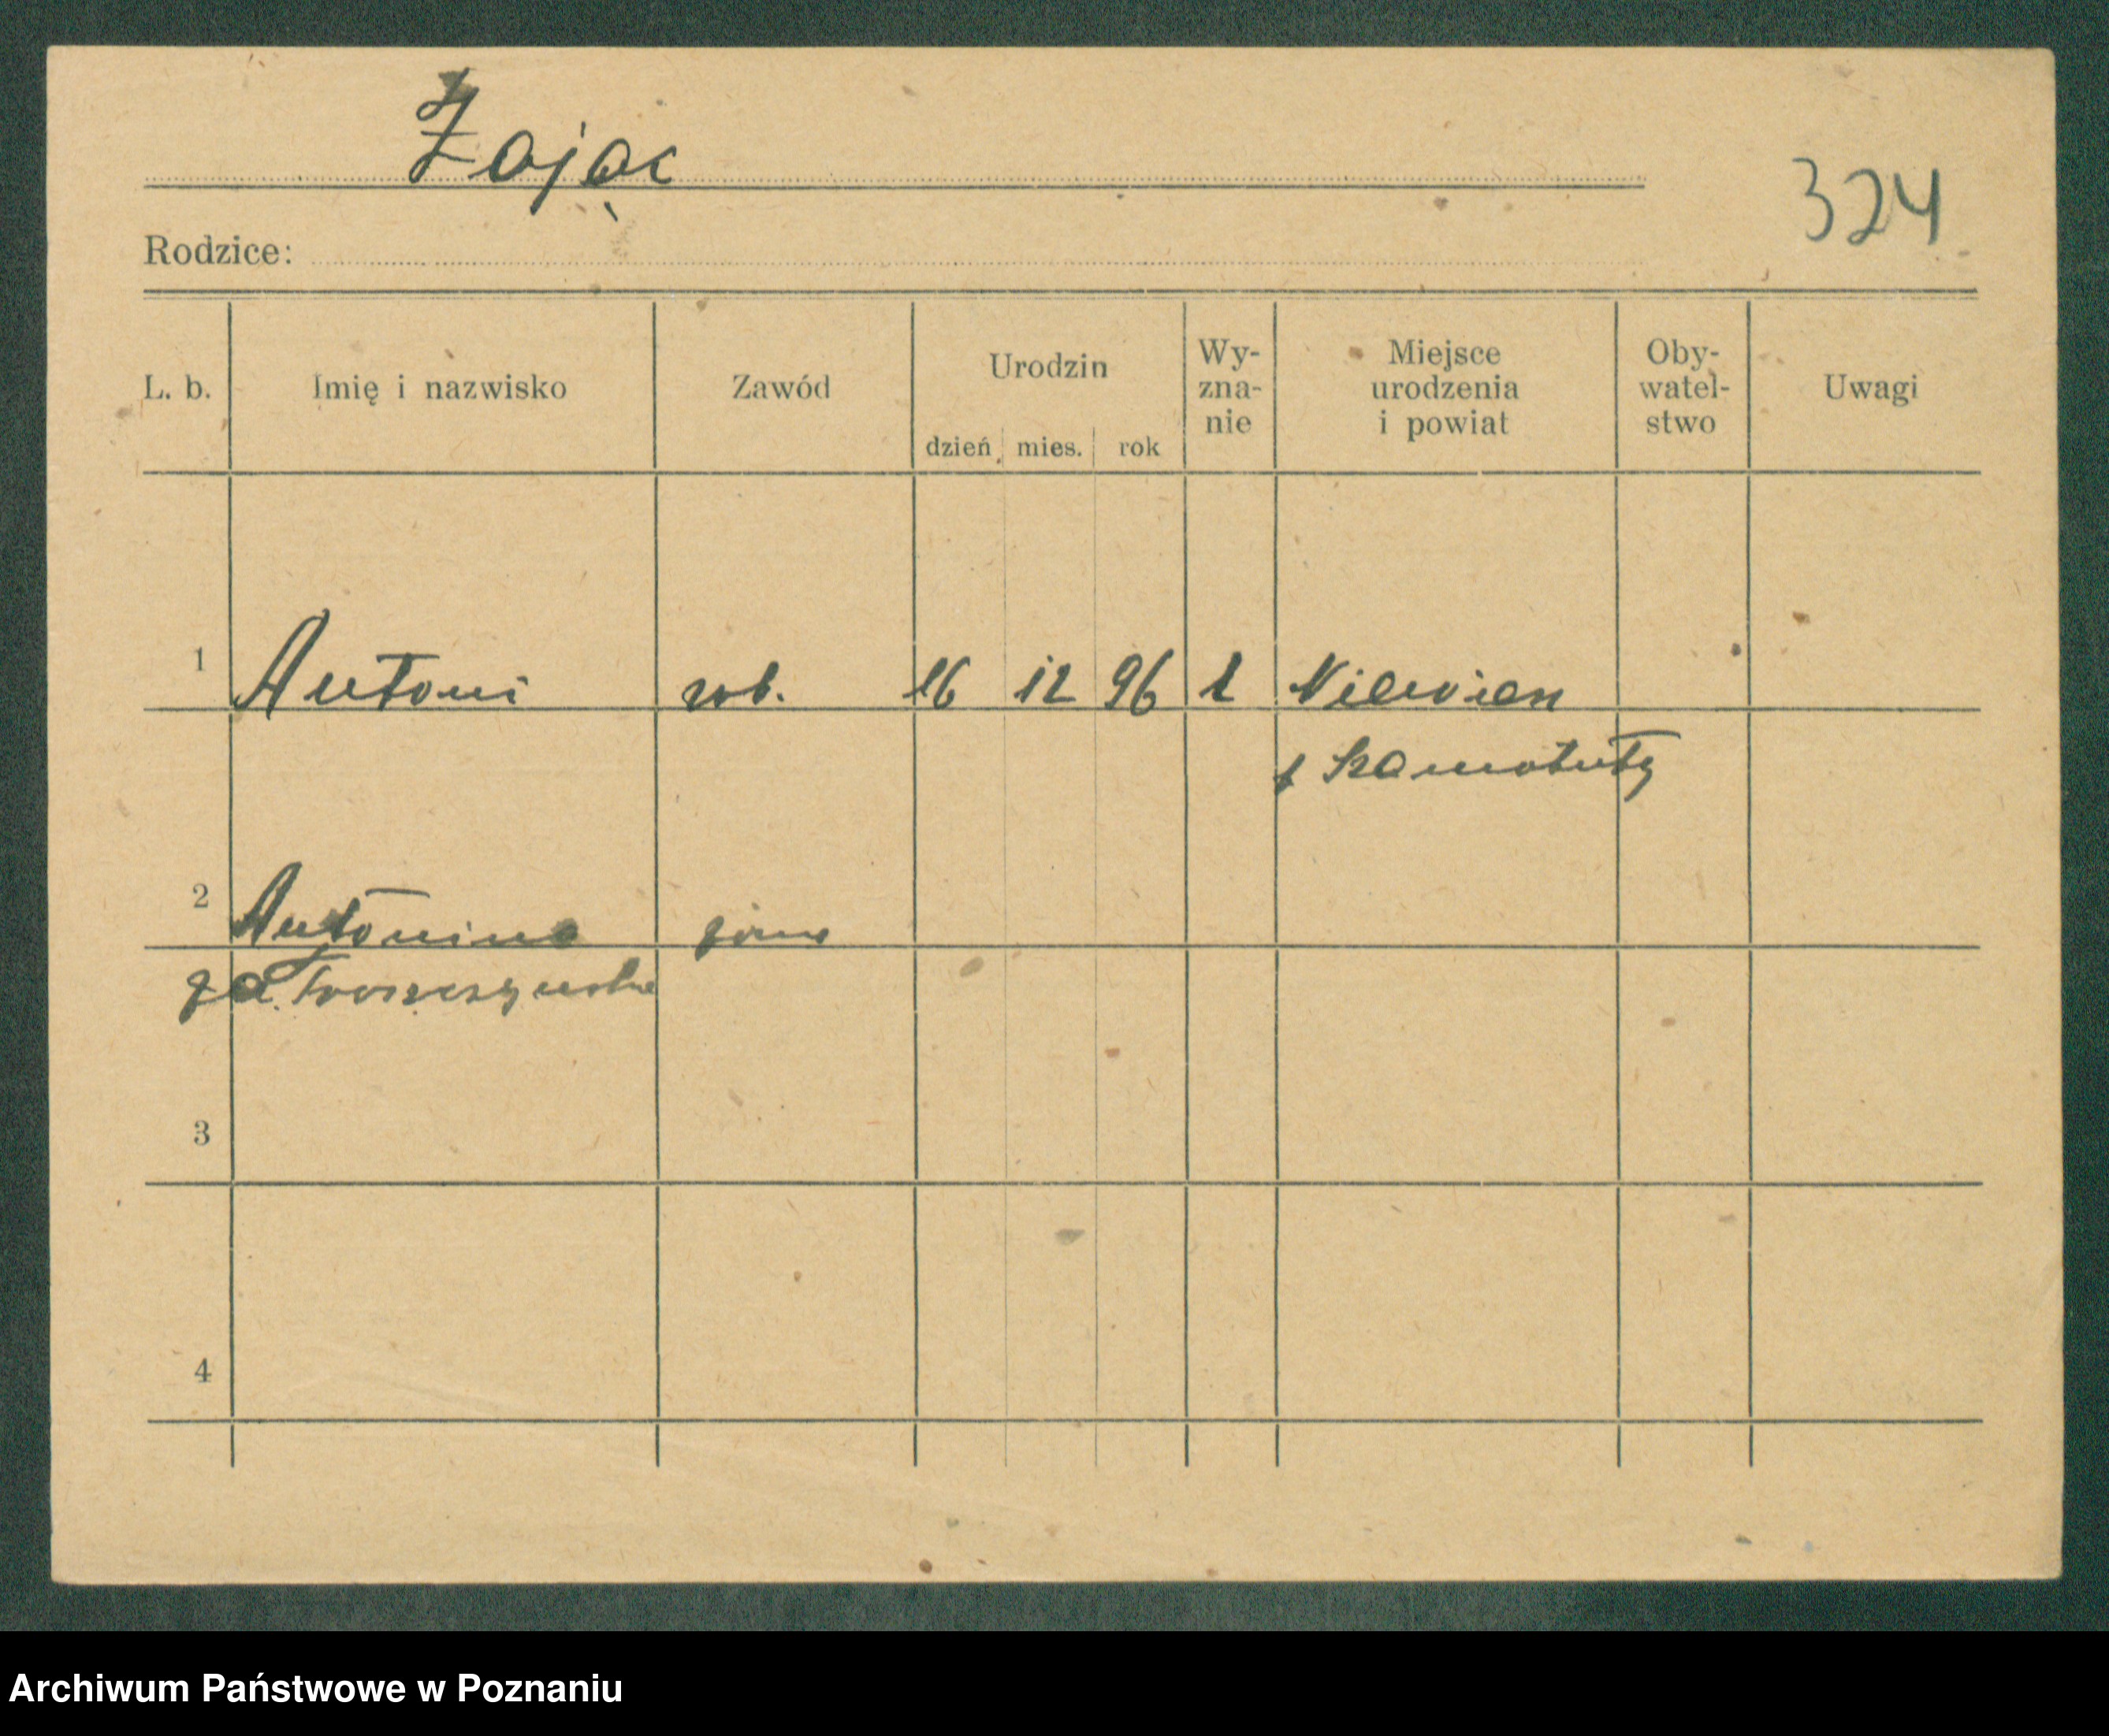 Zając
324
Rodzice:
L. b. Imię i nazwisko Zawód Urodzin dzień mies. rok Wy-zna-nie Miejsce urodzenia i powiat Oby-watel-stwo Uwagi
1 Antoni rob. 16 12 96
Szamotuły
2 Antonina żona
3
4
Archiwum Państwowe w Poznaniu